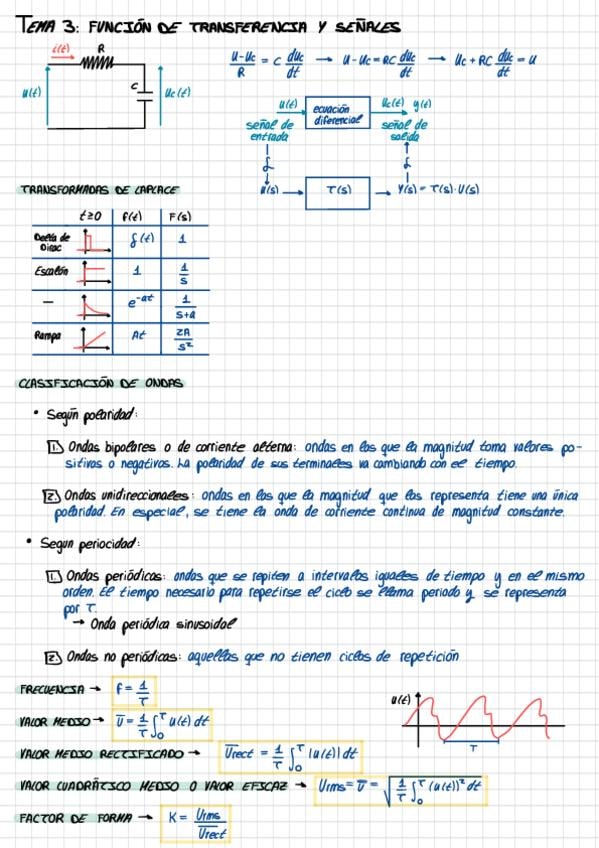 TEMA 3: FUNCIÓN DE TRANSFERENCIA Y SEÑALES
i(t) R
u(t) C Uc(t)
U-Uc/R = C duc/dt → U-Uc = RC duc/dt → Uc + RC duc/dt = U
u(t) ecuación diferencial Uc(t) y(t)
señal de entrada señal de salida
ℒ ℒ
U(s) → T(s) → Y(s) = T(s)·U(s)
TRANSFORMADAS DE LAPLACE
t≥0 f(t) F(s)
Delta de Dirac δ(t) 1
Escalón 1 1/s
— e^-at 1/s+a
Rampa At 2A/s²
CLASIFICACIÓN DE ONDAS
• Según polaridad:
1. Ondas bipolares o de corriente alterna: ondas en las que la magnitud toma valores po-
sitivos o negativos. La polaridad de sus terminales va cambiando con el tiempo.
2. Ondas unidireccionales: ondas en las que la magnitud que las representa tiene una única
polaridad. En especial, se tiene la onda de corriente continua de magnitud constante.
• Segun periocidad:
1. Ondas periódicas: ondas que se repiten a intervalos iguales de tiempo y en el mismo
orden. El tiempo necesario para repetirse el ciclo se llama periodo y se representa
por T.
→ Onda periódica sinusoidal
2. Ondas no periódicas: aquellas que no tienen ciclos de repetición
FRECUENCIA → f = 1/T
VALOR MEDIO → U̅ = 1/T ∫₀ᵀ u(t) dt
u(t)
T
VALOR MEDIO RECTIFICADO → U̅rect = 1/T ∫₀ᵀ |u(t)| dt
VALOR CUADRÁTICO MEDIO O VALOR EFICAZ → Urms = U̅ = √(1/T ∫₀ᵀ (u(t))² dt)
FACTOR DE FORMA → K = Urms/U̅rect